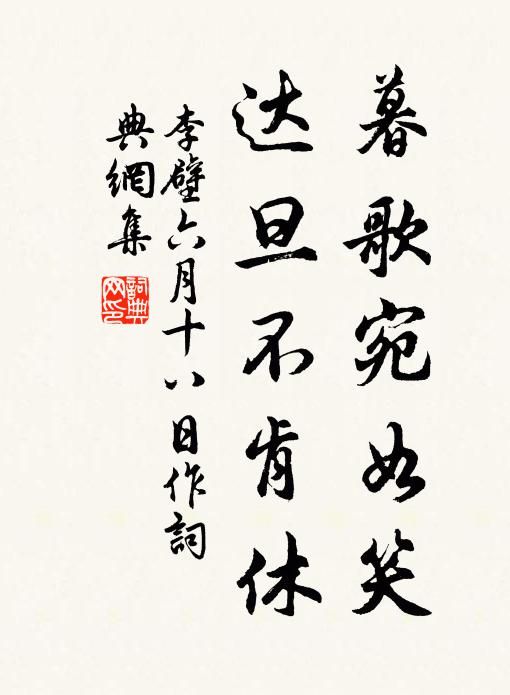 暮歌宛如笑
达旦不肯休
李壁六月十八日作詞
典網集
詞典网印